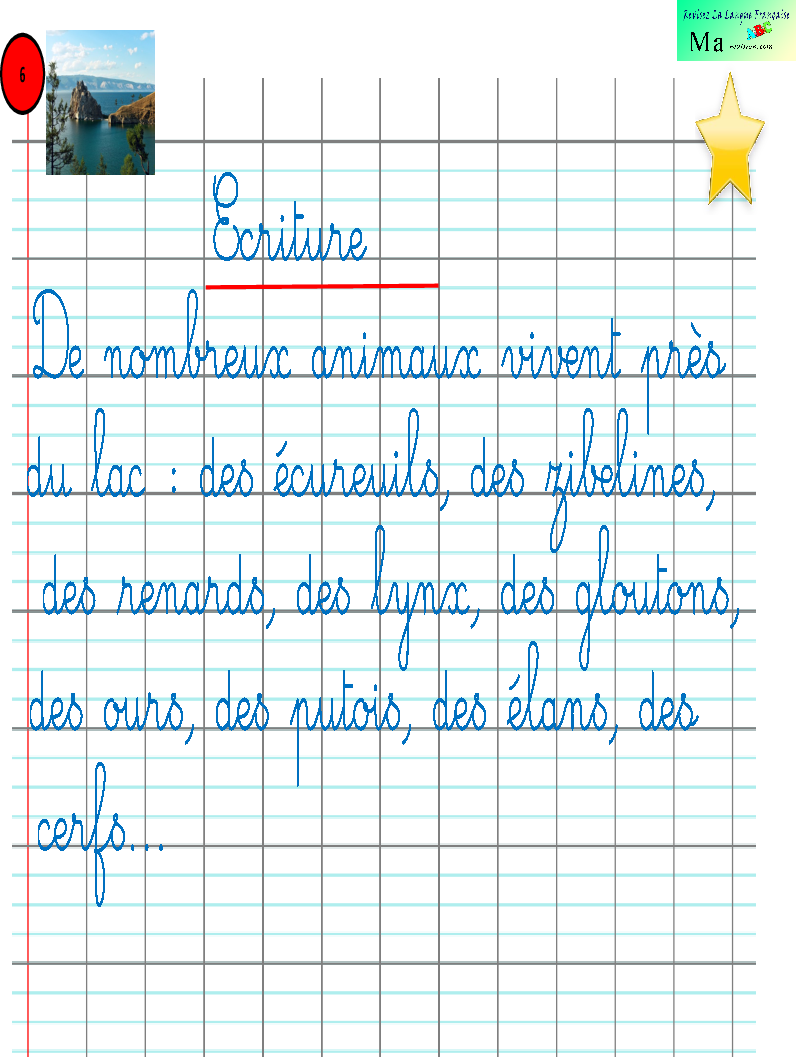 Revisez La Langue Française
Ma revision.com
6
Ecriture
De nombreux animaux vivent près
du lac : des écureuils, des zibelines,
des renards, des lynx, des gloutons,
des ours, des putois, des élans, des
cerfs...